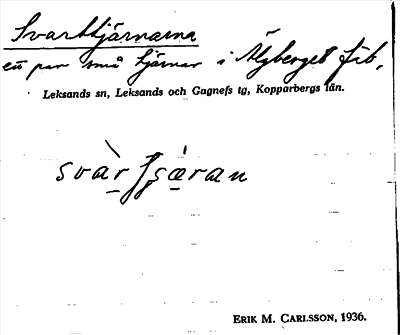 Svarttjärnarna
ett par små tjärnar i Älgberget fäb.
Leksands sn, Leksands och Gagnefs tg, Kopparbergs län.
svàrtʃæ̀ran
ERIK M. CARLSSON, 1936.